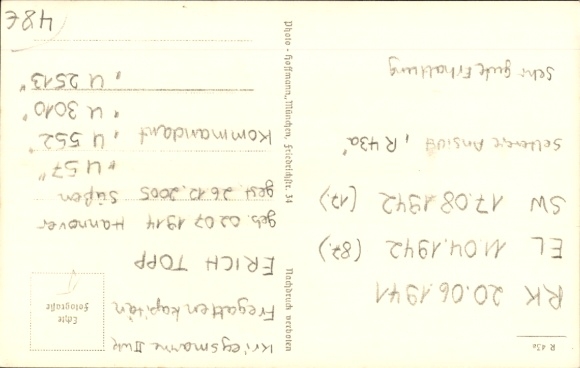 R 43a
RK 20.06.1941
EL 11.04.1942 (87.)
SW 17.08.1942 (17.)
Seltener Ansicht, "R 43a"
Sehr gute Erhaltung
Nachdruck verboten
Photo - Hoffmann, München, Friedrichstr. 34
Kriegsmarine II WK
Fregattenkapitän
ERICH TOPP
geb. 02.07.1914 Hannover
gest. 26.12.2005 Süßen
"U 57"
Kommandant "U 552"
"U 3010"
"U 2513"
Echte
Fotografie
48€